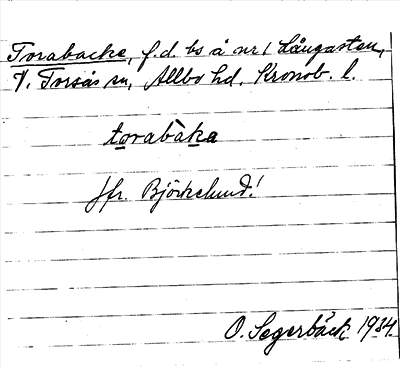 Torabacke, f.d. bs å nr 1 Långasten,
V. Torsås sn, Allbo hd. Kronob. l.
torabàka
Jfr. Björkelund!
O. Segerbäck 1934.